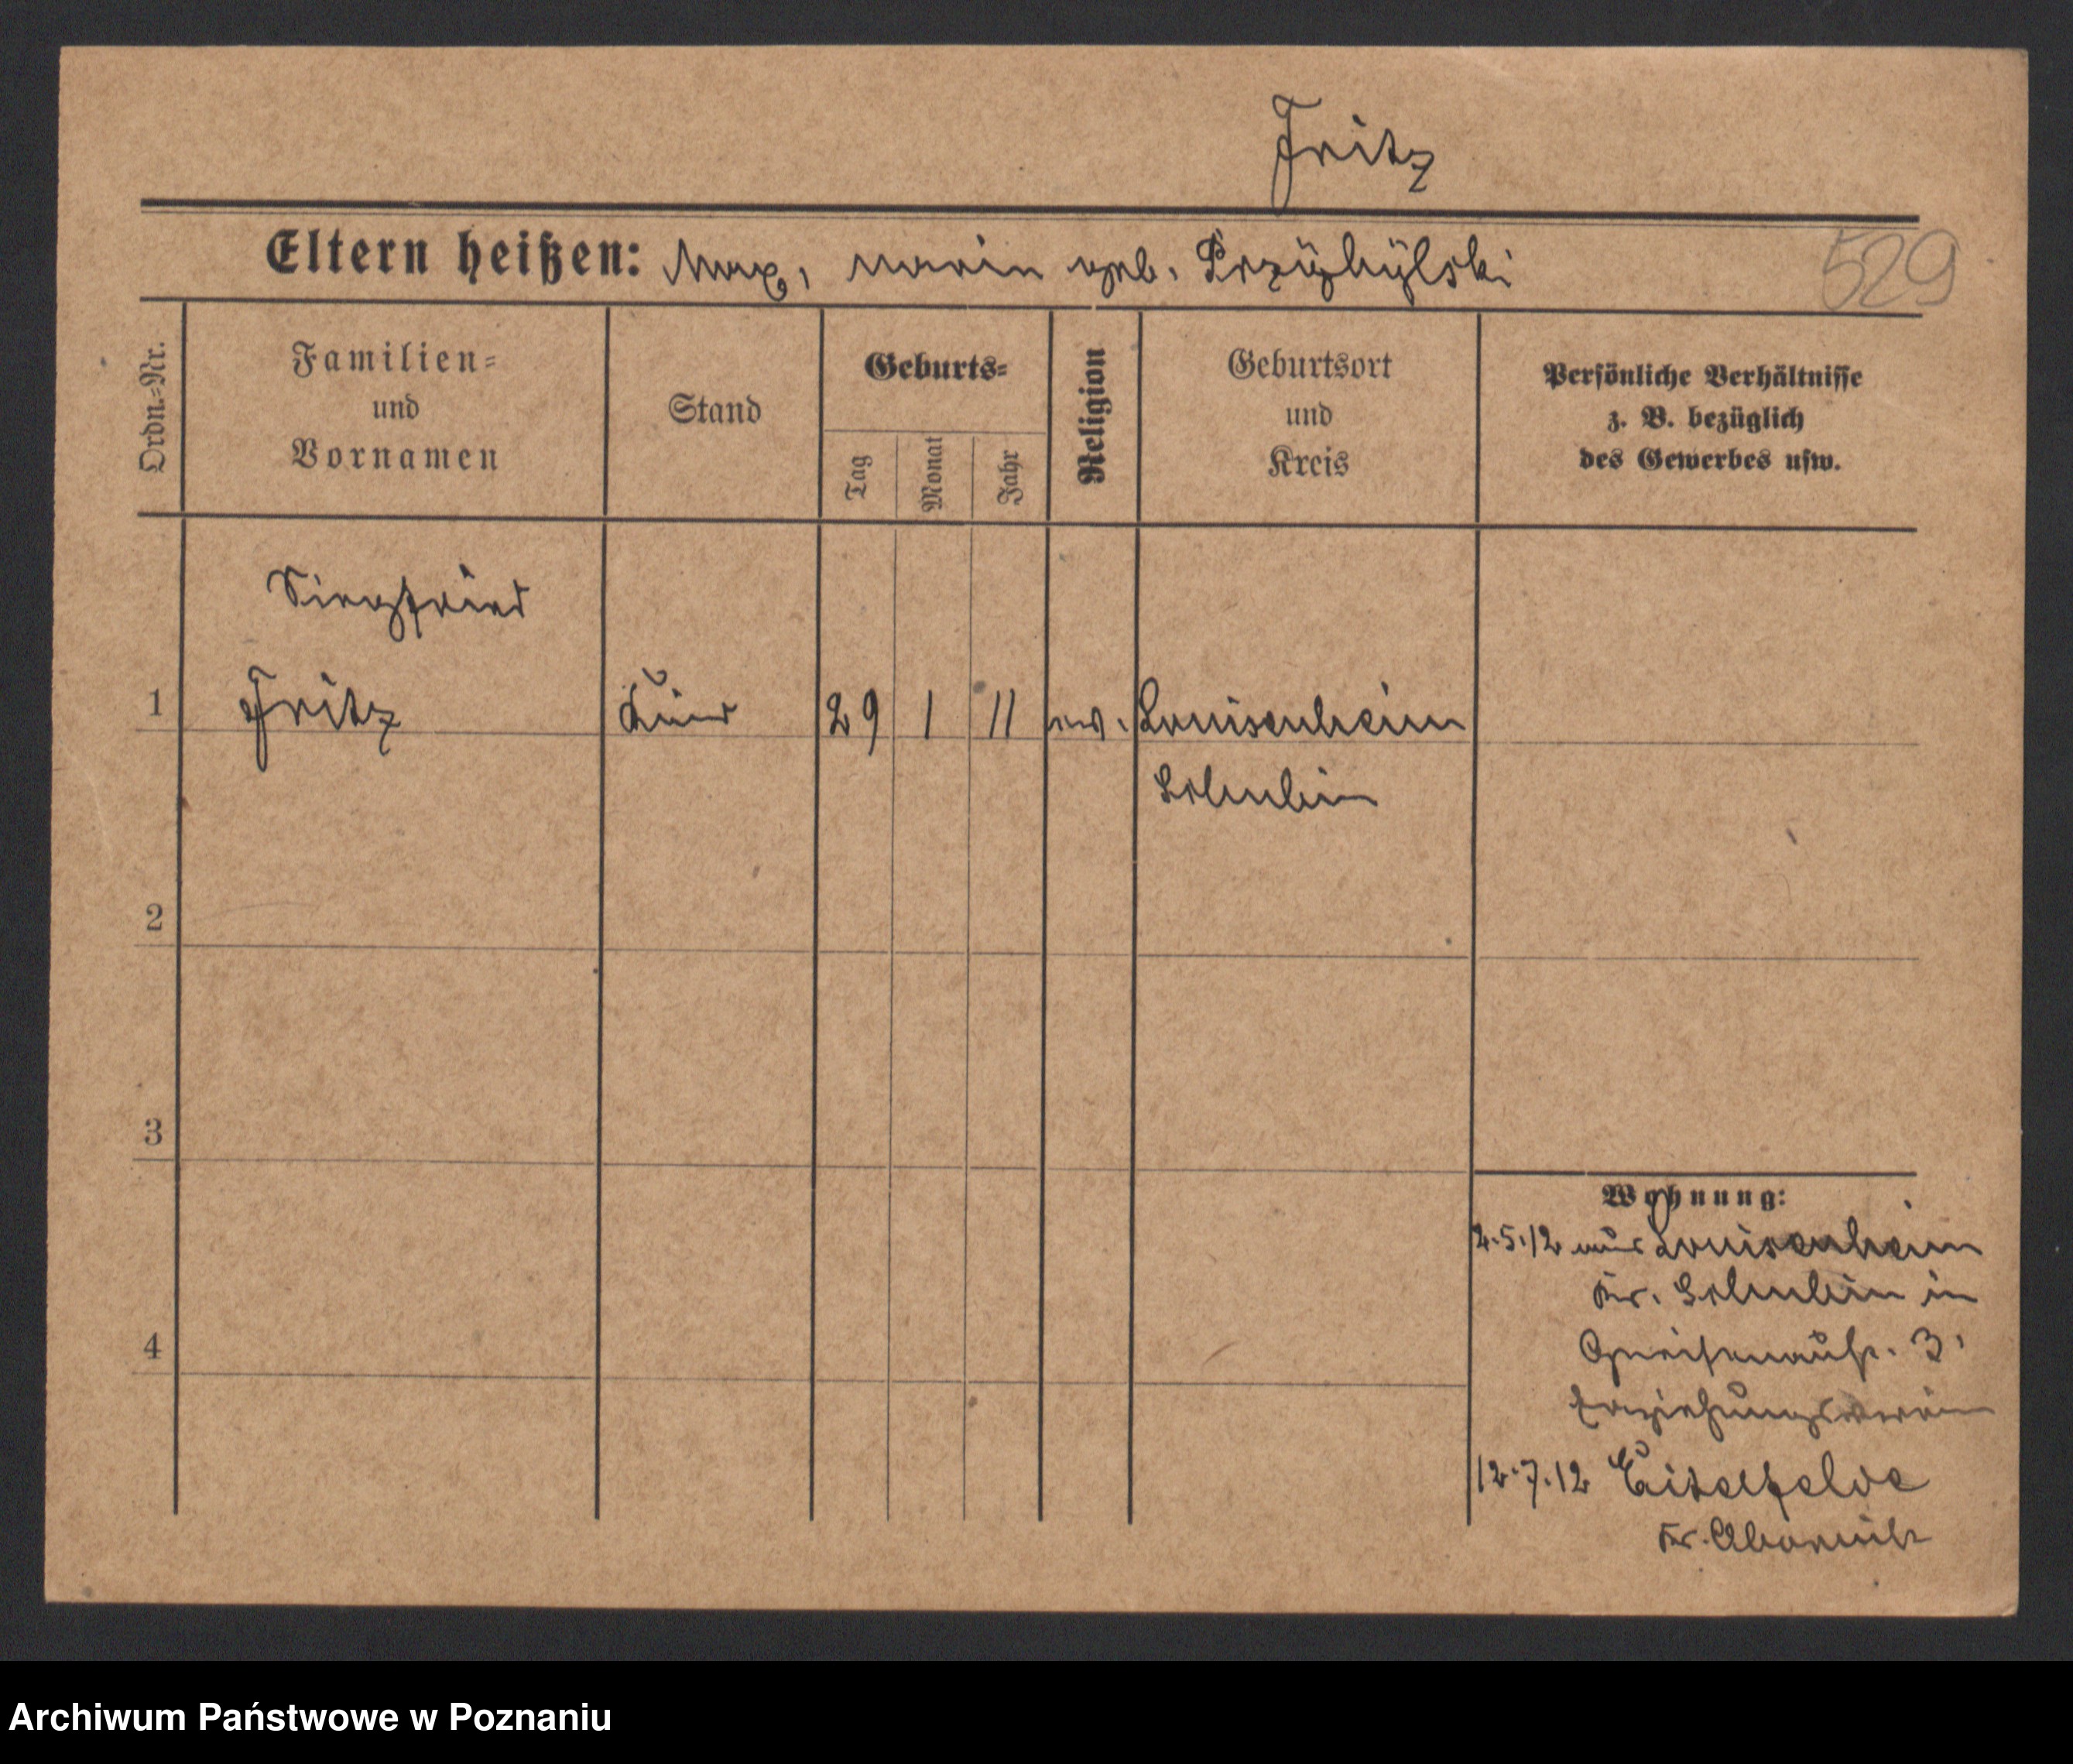 Fritz
Eltern heißen: Max, Marie geb. Przÿbÿlski
529
Ordn.=Nr.
Familien=
und
Vornamen
Stand
Geburts=
Tag
Monat
Jahr
Religion
Geburtsort
und
Kreis
Persönliche Verhältnisse
z. B. bezüglich
des Gewerbes usw.
Siegfried
1 Fritz Kind 29 1 11 ev. Louisenhein
2
3
4
Wohnung:
2.5.12 aus Louisenhein
Kr. in
Gneisenaustr. 3
Erziehungsverein
12.7.12 Eitelfelde
Kr. Obornik
Archiwum Państwowe w Poznaniu